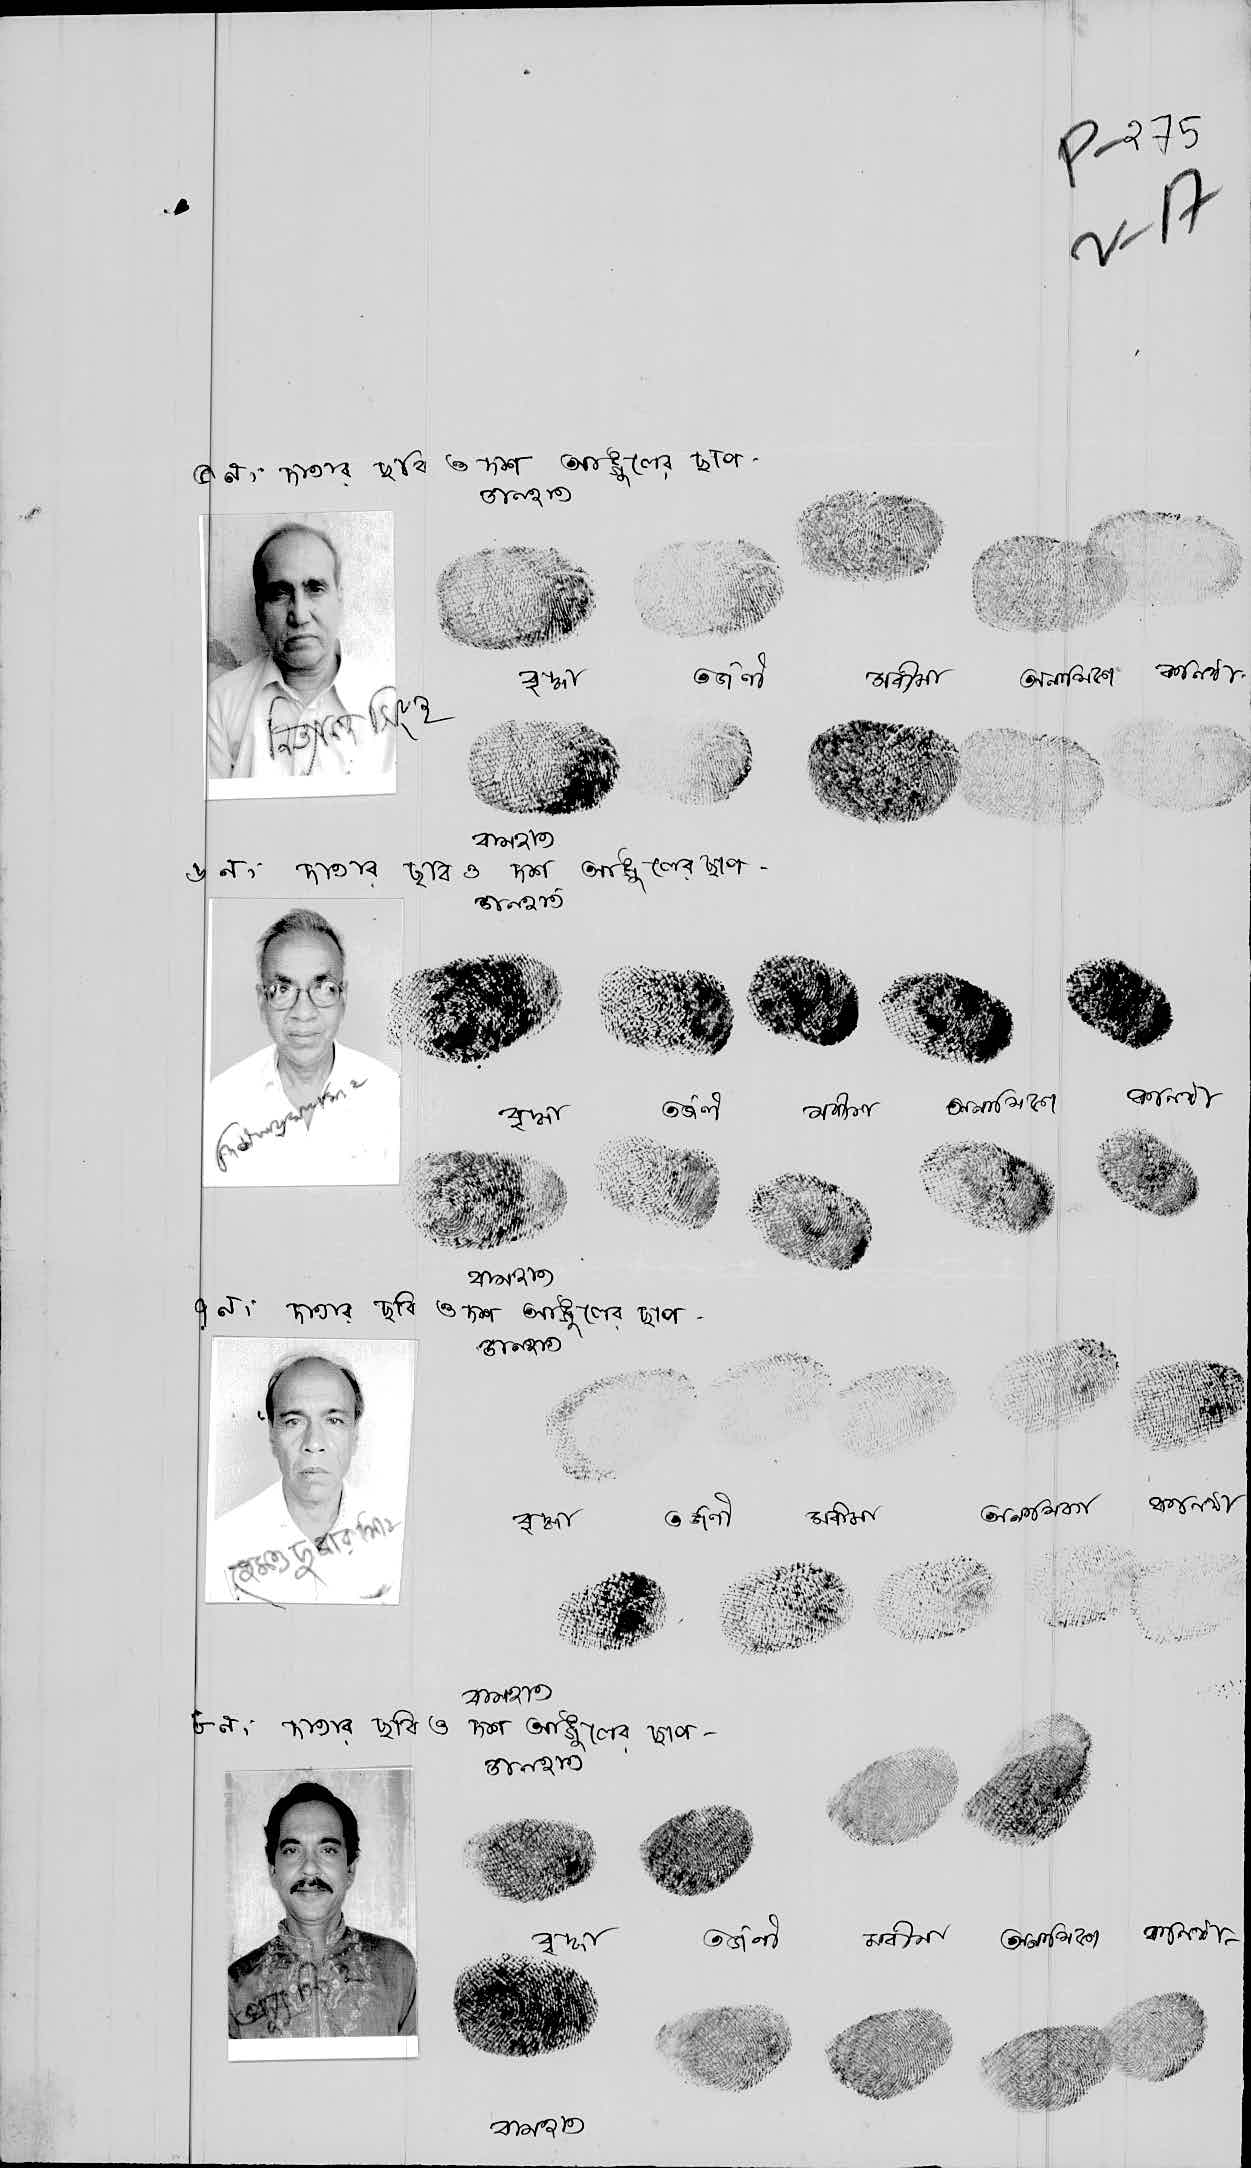 P-275
V-17
৫ নং দাতার ছবি ও দশ আঙ্গুলের ছাপ -
ডানহাত
বৃদ্ধা তর্জনী মধ্যমা অনামিকা কনিষ্ঠা
নিত্যানন্দ সিংহ
বামহাত
৬ নং দাতার ছবি ও দশ আঙ্গুলের ছাপ -
ডানহাত
বৃদ্ধা তর্জনী মধ্যমা অনামিকা কনিষ্ঠা
বামহাত
৭ নং দাতার ছবি ও দশ আঙ্গুলের ছাপ -
ডানহাত
বৃদ্ধা তর্জনী মধ্যমা অনামিকা কনিষ্ঠা
কুমার
বামহাত
৮ নং দাতার ছবি ও দশ আঙ্গুলের ছাপ -
ডানহাত
বৃদ্ধা তর্জনী মধ্যমা অনামিকা কনিষ্ঠা
বামহাত